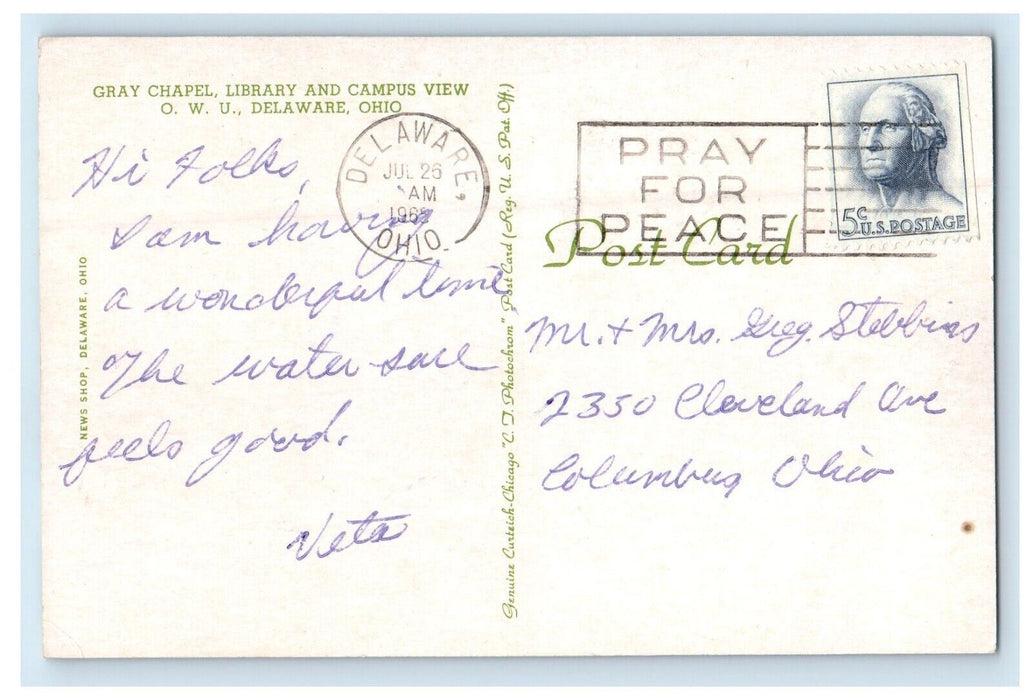 GRAY CHAPEL, LIBRARY AND CAMPUS VIEW
O. W. U., DELAWARE, OHIO
Hi Folks,
I am having
a wonderful time
The water sure
feels good.
Veta
NEWS SHOP, DELAWARE, OHIO
Genuine Curteich-Chicago "C. T. Photochrom" Post Card (Reg. U. S. Pat. Off.)
DELAWARE,
JUL 26
AM
OHIO
PRAY
FOR
PEACE
5c U.S. POSTAGE
Post Card
Mr. + Mrs. Greg. Stebbins
2350 Cleveland Ave
Columbus Ohio